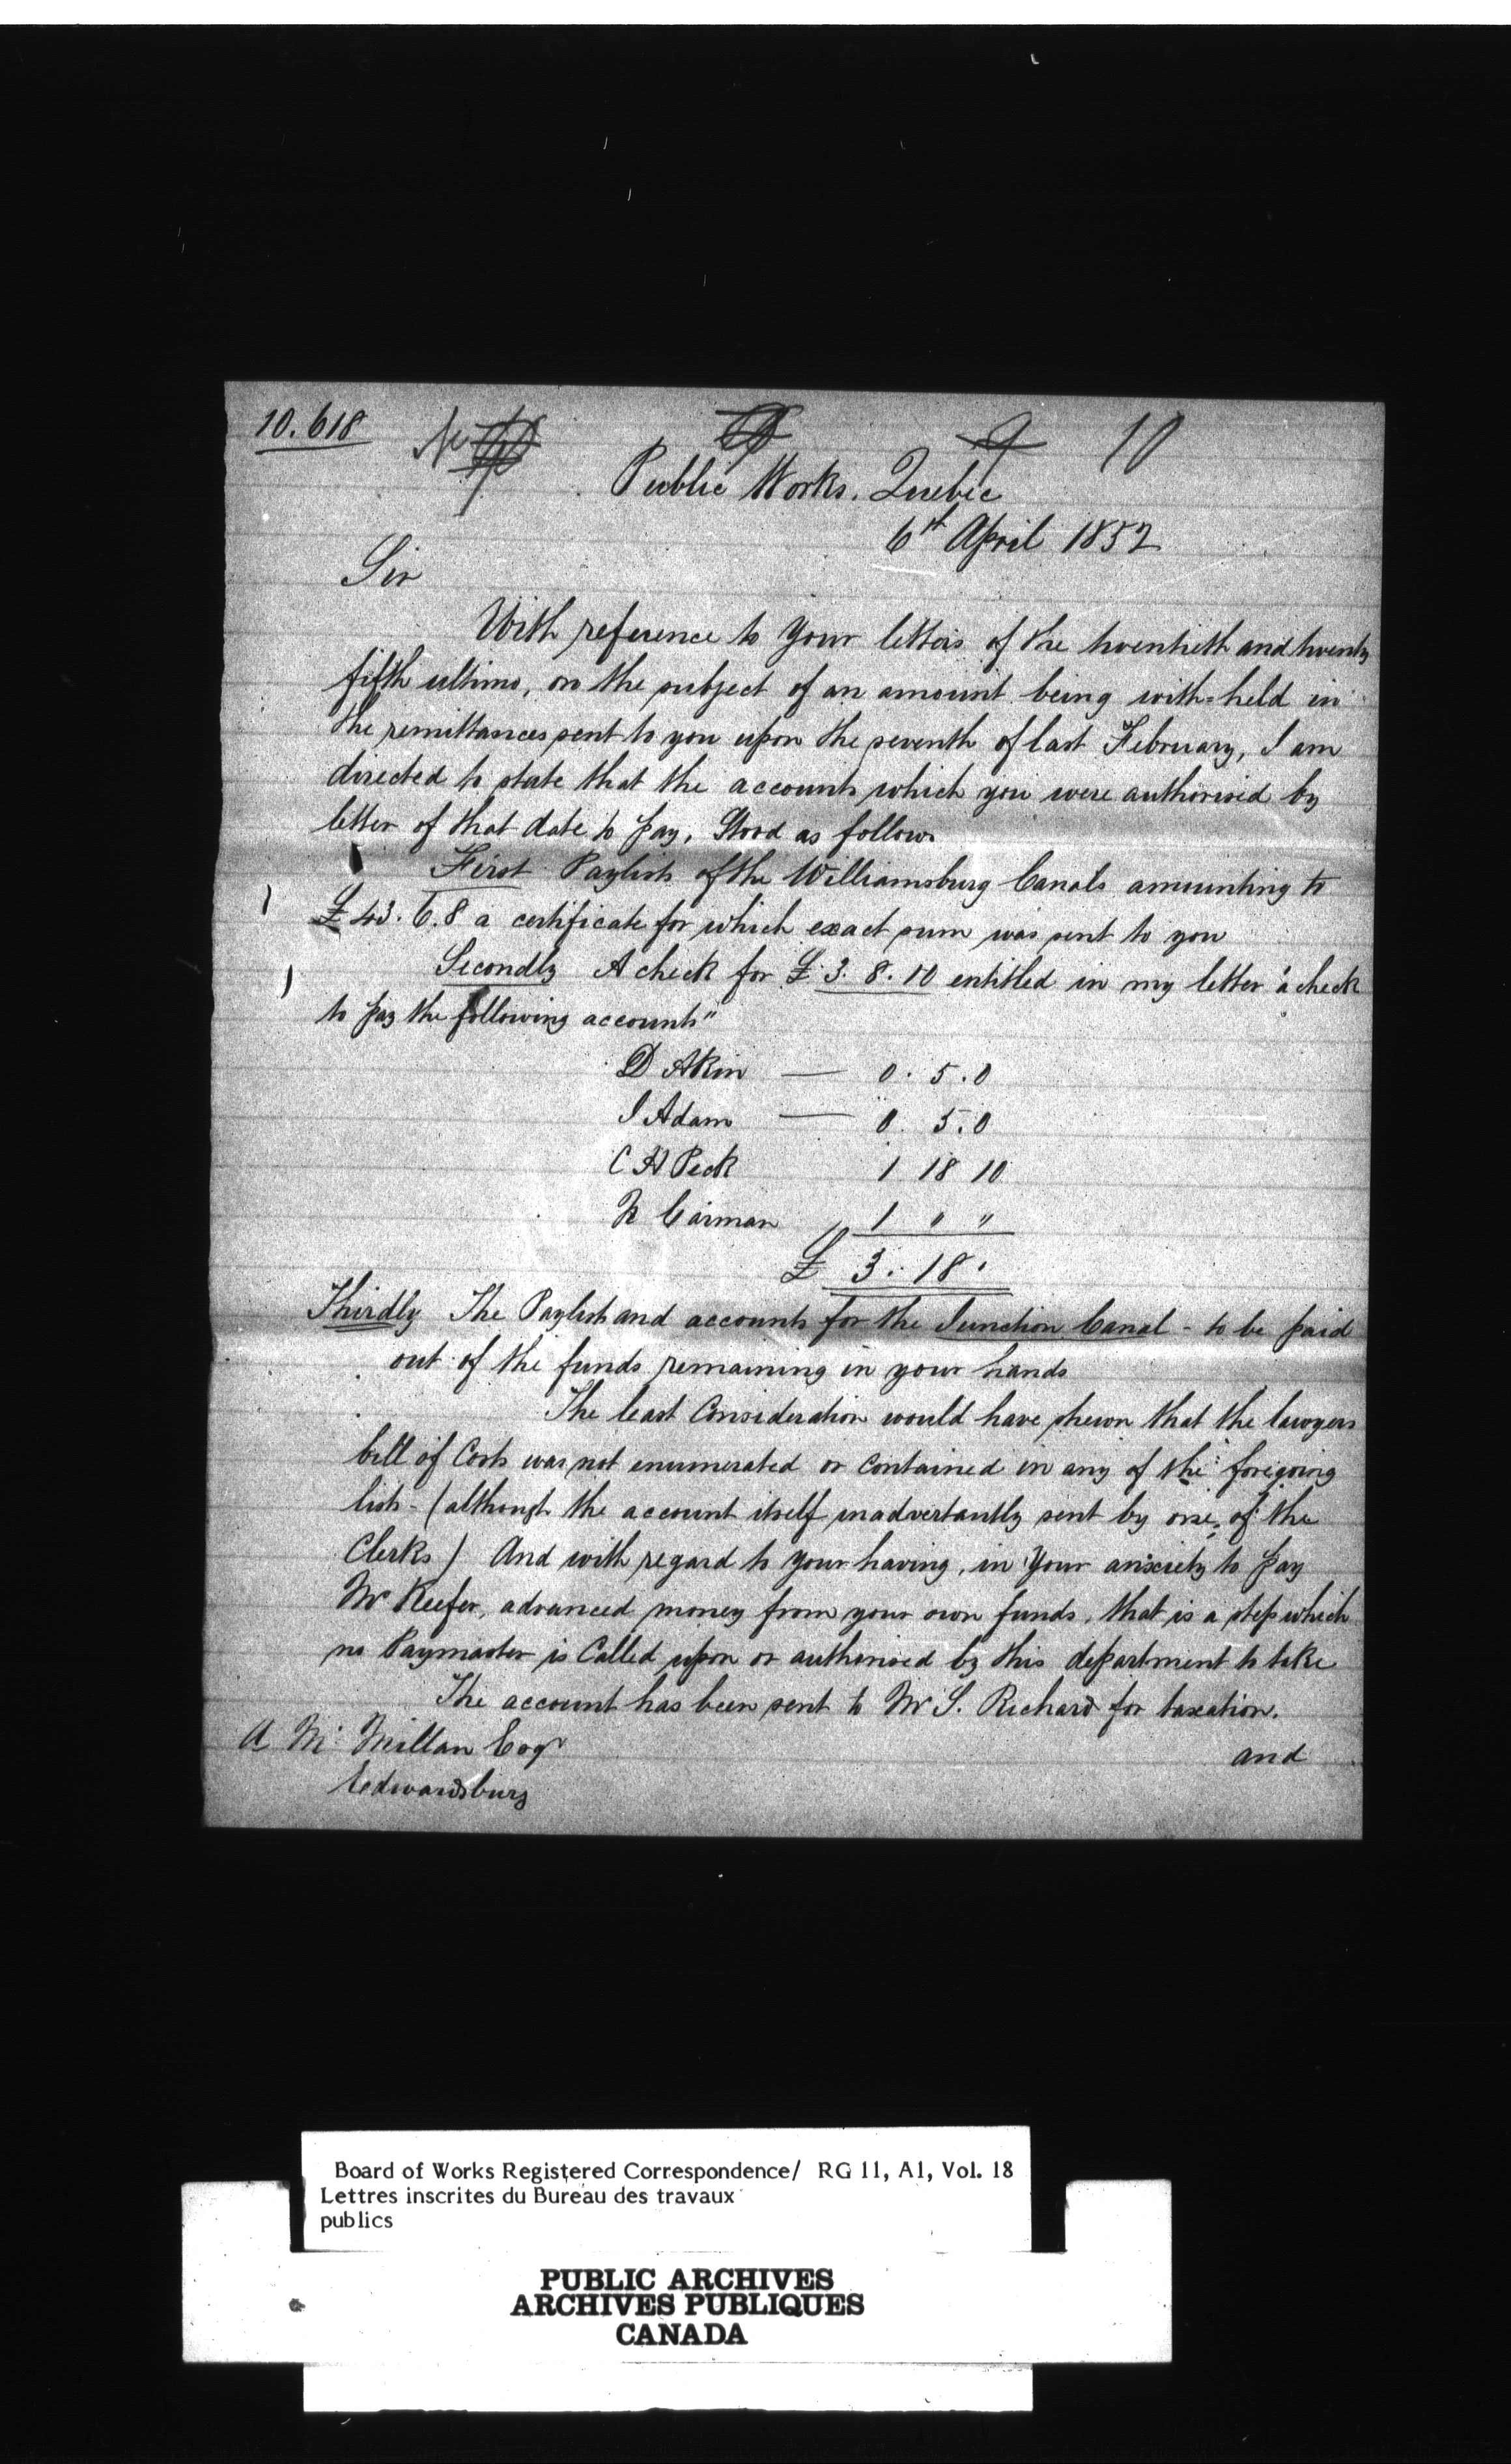 10.618
9 10
Public Works. Quebec
6th April 1852
Sir
With reference to your letters of the twentieth and twenty
fifth ultimo, on the subject of an amount being with=held in
the remittances sent to you upon the seventh of last February, I am
directed to state that the accounts which you were authorised by
letter of that date to pay, Stood as follows
First Paylists of the Williamsburg Canals amounting to
£43. 6.8 a certificate for which exact sum was sent to you
Secondly A check for £3. 8. 10 entitled in my letter "a check
to pay the following accounts"
D Akin — 0. 5. 0
J Adam — 0. 5. 0
C H Peck 1 18 10
N Carman 1 " "
£ 3. 18.
Thirdly The Paylist and accounts for the Junction Canal - to be paid
out of the funds remaining in your hands
The least Consideration would have shewn that the lawyers
bill of Costs was not enumerated or contained in any of the foregoing
lists - (although the account itself inadvertantly sent by one of the
Clerks) And with regard to your having, in your anxiety to pay
Mr Keefer, advanced money from your own funds, that is a step which
no Paymaster is Called upon or authorised by this department to take
The account has been sent to Mr S. Richard for taxation.
A Mc Millan Esqr
and
Edwardsburg
Board of Works Registered Correspondence/ RG 11, A1, Vol. 18
Lettres inscrites du Bureau des travaux
publics
PUBLIC ARCHIVES
ARCHIVES PUBLIQUES
CANADA